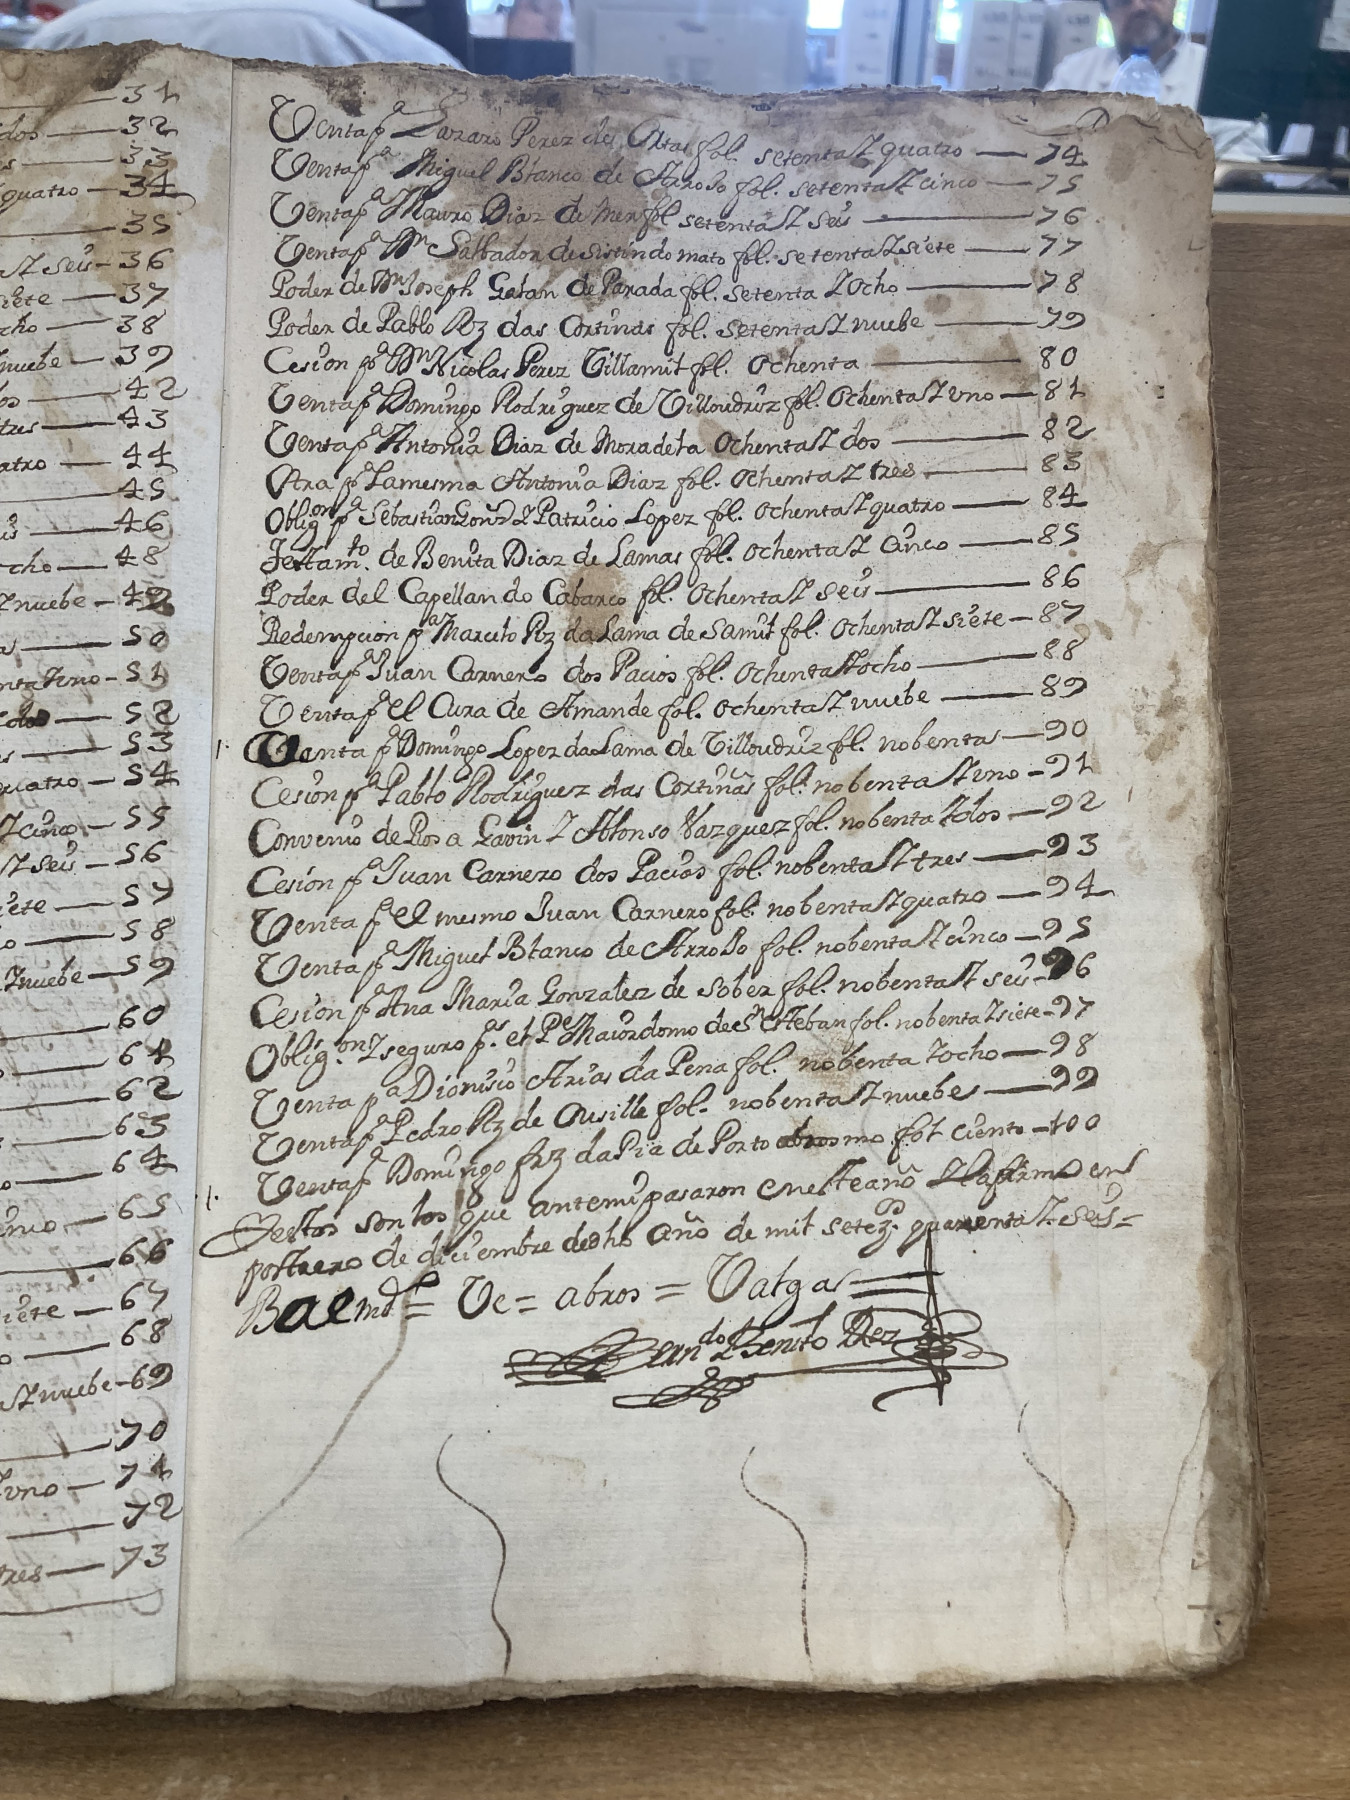 34
dos — 32
s — 33
quatro — 34
35
seis — 36
siete — 37
ocho — 38
nuebe — 39
42
tres — 43
atro — 44
45
46
ocho — 48
nuebe — 49
50
51
52
53
quatro — 54
cinco — 55
seis — 56
iete — 57
58
nuebe — 59
60
61
62
63
64
65
66
iete — 67
68
nuebe — 69
70
uno — 71
72
tres — 73
Venta pa Lazaro Perez de fol. setenta Y quatro — 74
Venta pa Miguel Blanco de Arroxo fol. setenta Y cinco — 75
Venta pa Mauro Diaz de fol setenta Y seis — 76
Venta pa Dn Salbador de fol. setenta Y siete — 77
Poder de Dn Joseph Gaban de Parada fol. setenta Y Ocho — 78
Poder de Pablo Rz das Cortinas fol. setenta Y nuebe — 79
Cesion pa Dn Nicolas Perez Villamil fol. Ochenta — 80
Venta pa Domingo Rodriguez de Villoudriz fol. Ochenta Y Uno — 81
Venta pa Antonia Diaz de Moradela Ochenta Y dos — 82
Otra pa La mesma Antonia Diaz fol. Ochenta Y tres — 83
Obligon pa Sebastian Gonz Y Patricio Lopez fol. Ochenta Y quatro — 84
Testamto. de Benita Diaz de Lamas fol. Ochenta Y cinco — 85
Poder del Capellan do Cabarco fol. Ochenta Y seis — 86
Redempcion pa Marcelo Rz da Lama de Samil fol. Ochenta Y siete — 87
Venta pa Juan Carnero dos Pacios fol. Ochenta Y ocho — 88
Venta pa el Cura de Amande fol. Ochenta Y nuebe — 89
Venta pa Domingo Lopez da Lama de Villoudriz fol. nobenta — 90
Cesion pa Pablo Rodriguez das Cortiñas fol. nobenta Y Uno — 91
Convenio de Rosa Gavin Y Alonso Vazquez fol. nobenta Y dos — 92
Cesion pa Juan Carnero dos Pacios fol. nobenta Y tres — 93
Venta pa el mesmo Juan Carnero fol. nobenta Y quatro — 94
Venta pa Miguel Blanco de Arroxo fol. nobenta Y cinco — 95
Cesion pa Ana Maria Gonzalez de sober fol. nobenta Y seis — 96
Obligon. Y seguro pr. el Pe Maiordomo de Sn Esteban fol. nobenta Y siete — 97
Venta pa Dionisio Arias da Pena fol. nobenta Y ocho — 98
Venta pa Pedro Rz de Ousille fol. nobenta Y nuebe — 99
Venta pa Domingo frz da Pia de Porto abrosmo fol ciento — 100
Y estos son los que antemi pasaron en este año Y lo firmo en
postrero de diciembre de dho año de mil setezs. quarenta Y seis =
= Ve = abros = Valga
Benito Diez